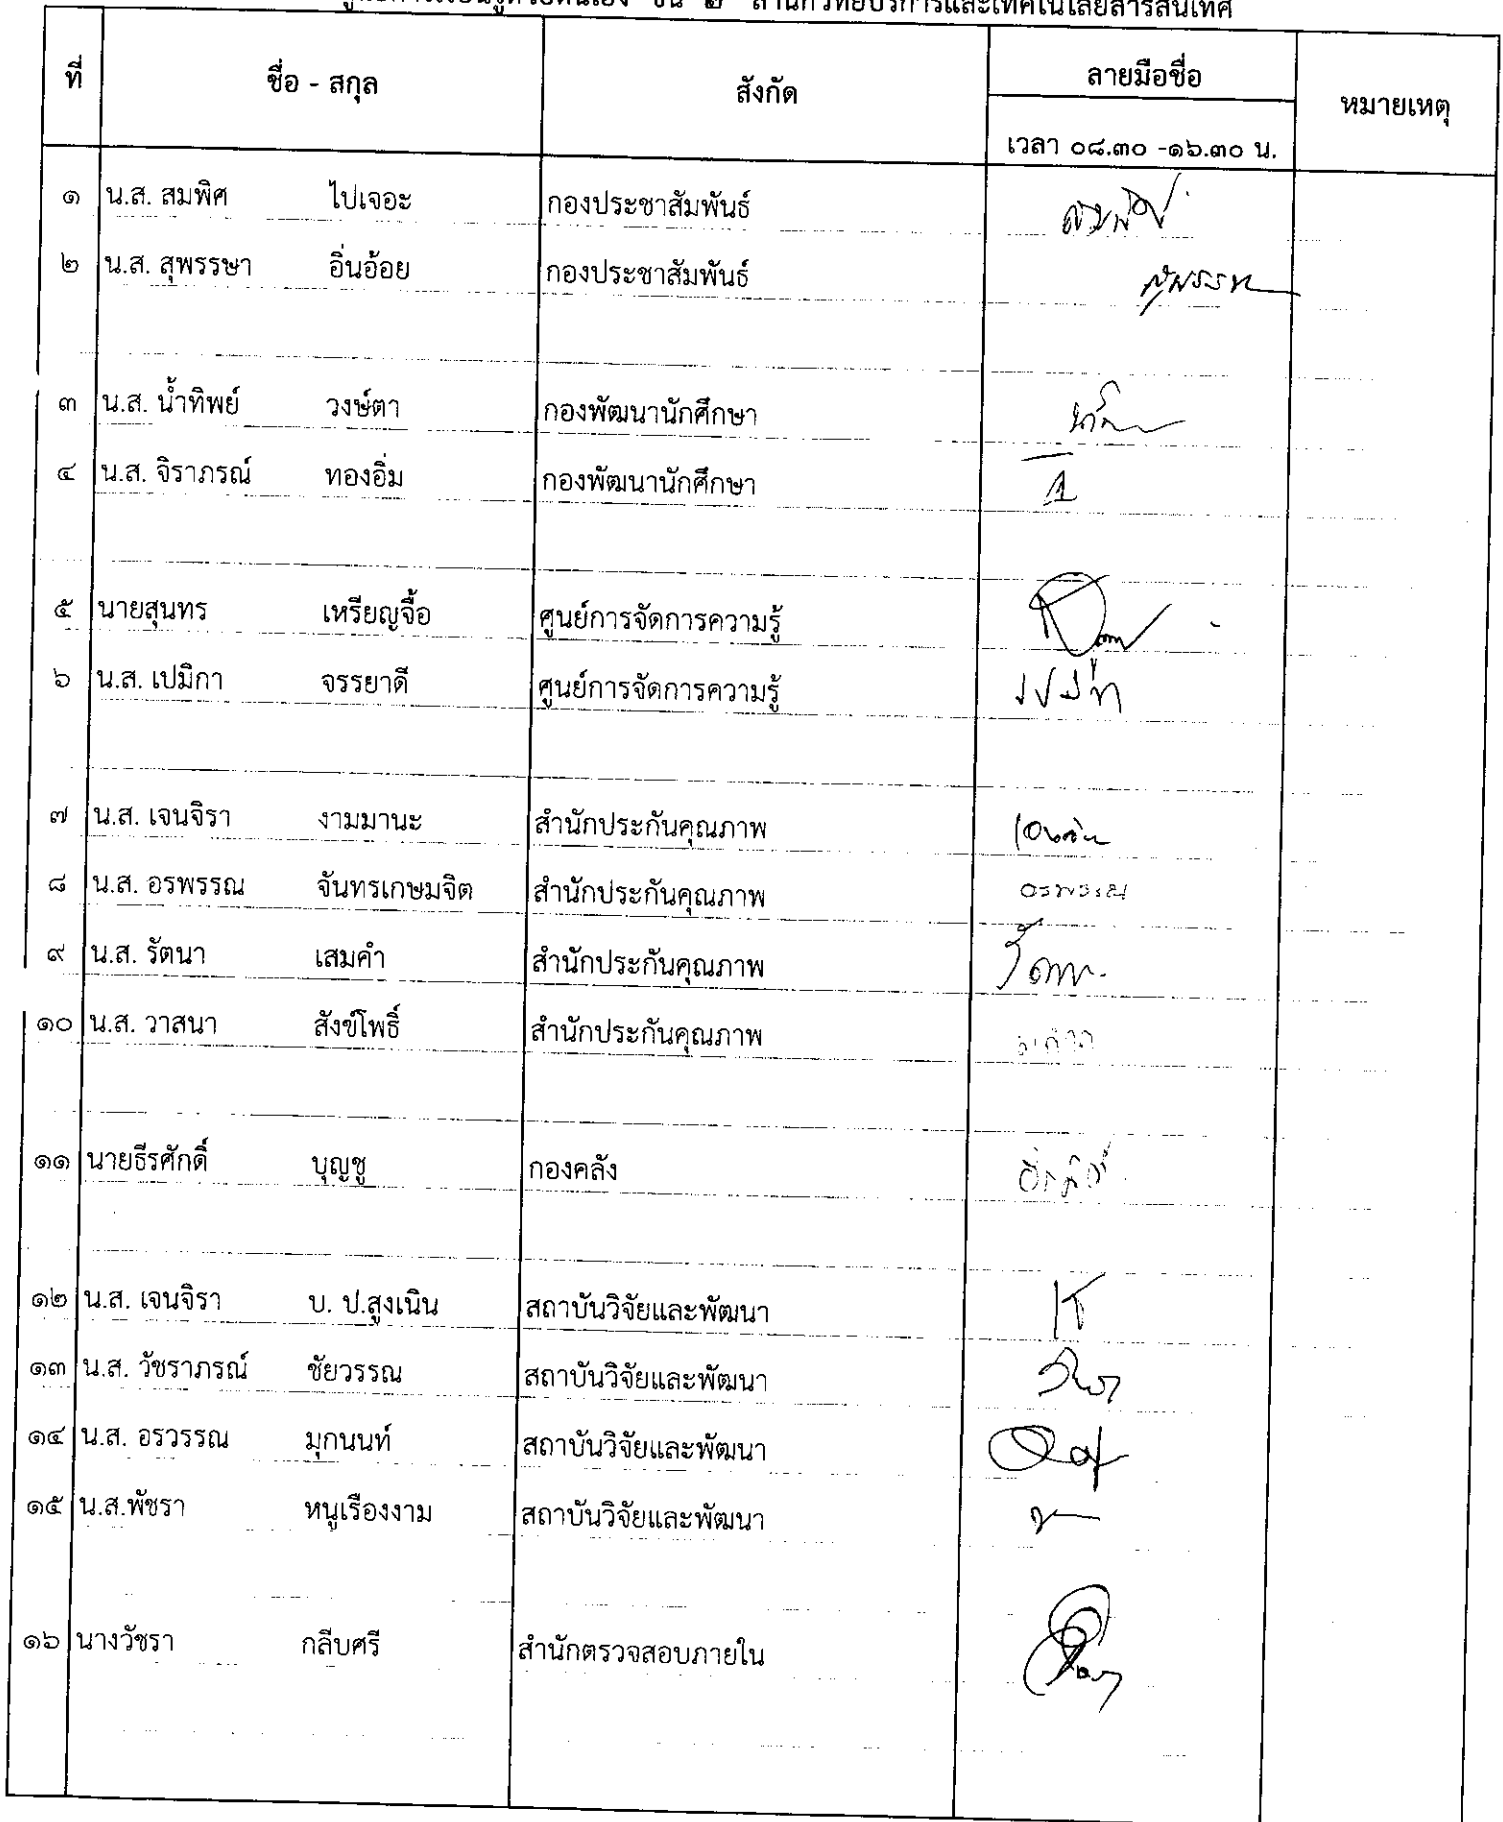 ชั้น ๒ สำนักวิทยบริการและเทคโนโลยีสารสนเทศ
ที่ ชื่อ - สกุล สังกัด ลายมือชื่อ หมายเหตุ
เวลา ๐๘.๓๐ -๑๖.๓๐ น.
๑ น.ส. สมพิศ ไปเจอะ กองประชาสัมพันธ์
๒ น.ส. สุพรรษา อิ่นอ้อย กองประชาสัมพันธ์
๓ น.ส. น้ำทิพย์ วงษ์ตา กองพัฒนานักศึกษา
๔ น.ส. จิราภรณ์ ทองอิ่ม กองพัฒนานักศึกษา
๕ นายสุนทร เหรียญจื้อ ศูนย์การจัดการความรู้
๖ น.ส. เปมิกา จรรยาดี ศูนย์การจัดการความรู้
๗ น.ส. เจนจิรา งามมานะ สำนักประกันคุณภาพ
๘ น.ส. อรพรรณ จันทรเกษมจิต สำนักประกันคุณภาพ อรพรรณ
๙ น.ส. รัตนา เสมคำ สำนักประกันคุณภาพ
๑๐ น.ส. วาสนา สังข์โพธิ์ สำนักประกันคุณภาพ
๑๑ นายธีรศักดิ์ บุญชู กองคลัง
๑๒ น.ส. เจนจิรา บ. ป.สูงเนิน สถาบันวิจัยและพัฒนา
๑๓ น.ส. วัชราภรณ์ ชัยวรรณ สถาบันวิจัยและพัฒนา
๑๔ น.ส. อรวรรณ มุกนนท์ สถาบันวิจัยและพัฒนา
๑๕ น.ส.พัชรา หนูเรืองงาม สถาบันวิจัยและพัฒนา
๑๖ นางวัชรา กลีบศรี สำนักตรวจสอบภายใน